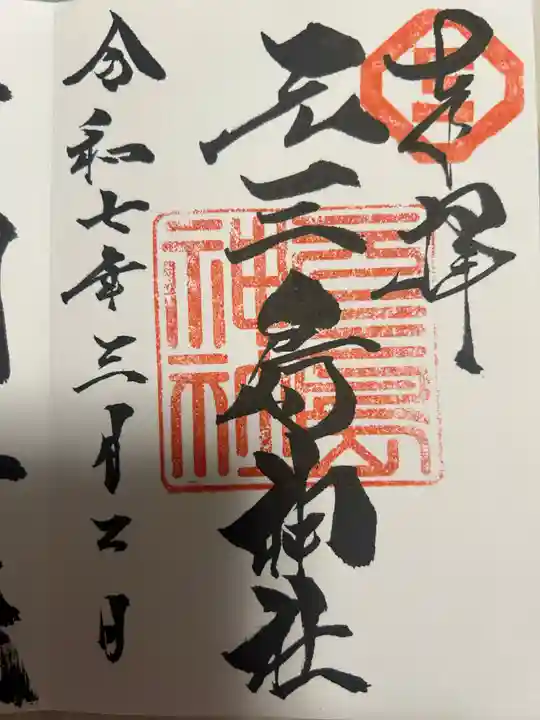 奉拝
元三島神社
三島神社
令和七年三月二日